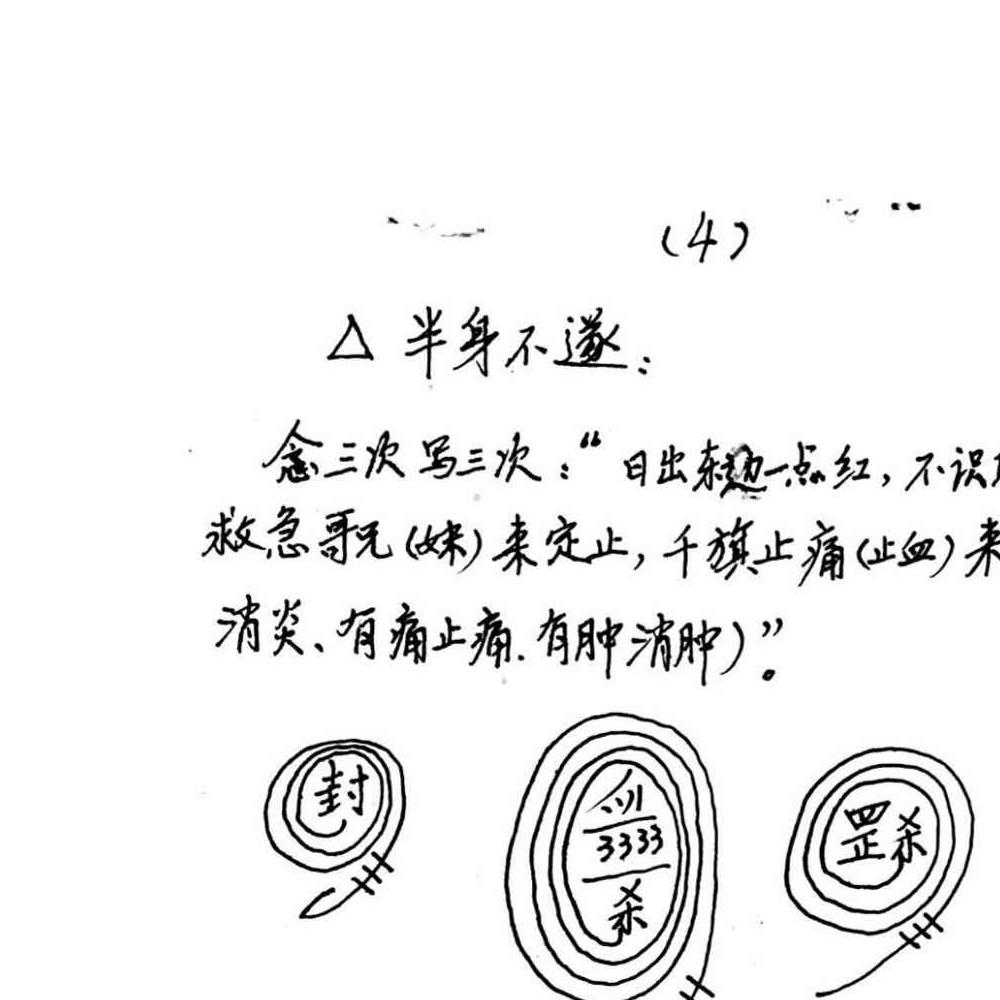 (4)
△ 半身不遂:
念三次写三次:“日出东边一点红,不识
救急哥兄(妹)来定止,千旗止痛(止血)来
消炎、有痛止痛.有肿消肿)”。
封
3333
杀
罡杀